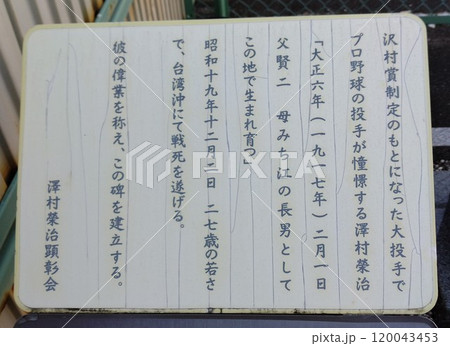 沢村賞制定のもとになった大投手で
プロ野球の投手が憧憬する澤村榮治
「大正六年(一九一七年)二月一日
父賢二 母みち江の長男として
この地で生まれ育つ」
昭和十九年十二月二日 二七歳の若さ
で、台湾沖にて戦死を遂げる。
彼の偉業を称え、この碑を建立する。
澤村榮治顕彰会
PIXTA
120043453